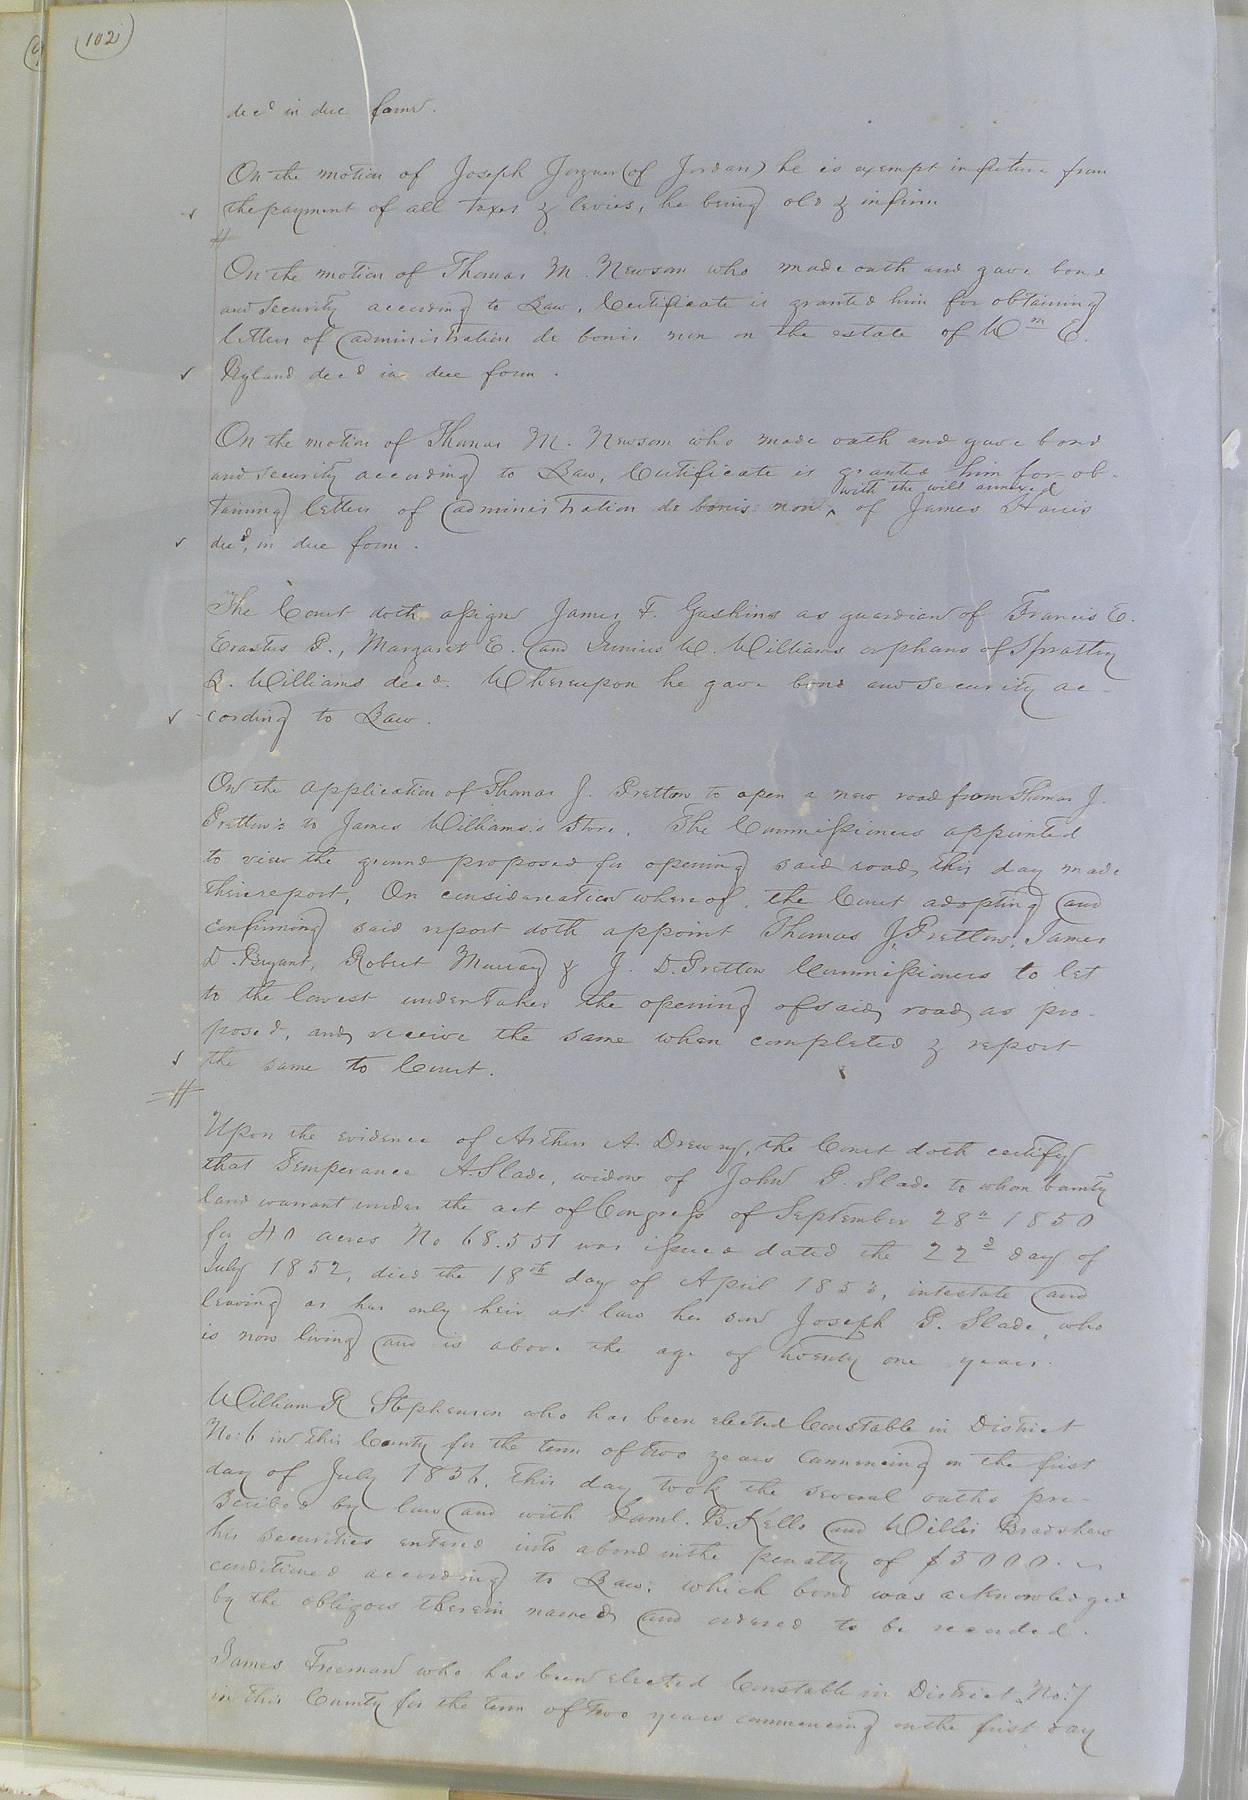 (102)
decd in due form.
On the motion of Joseph Joyner (of Jordan) he is exempt in future from
the payment of all taxes & levies, he being old & infirm
On the motion of Thomas M. Newsom who made oath and gave bond
and security according to Law, Certificate is granted him for obtaining
letters of administration de bonis non on the estate of Wm E.
Ryland decd in due form.
On the motion of Thomas M. Newsom who made oath and gave bond
and security according to Law, Certificate is granted him for ob-
with the will annexed
taining letters of administration de bonis non ^ of James Harris
decd, in due form.
The Court doth assign James F. Gaskins as guardian of Francis E.
Erastus P., Margaret E. and Junius W. Williams orphans of Spratley
R. Williams decd. Whereupon he gave bond and security ac-
cording to Law.
On the application of Thomas J. Pretlow to open a new road from Thomas J.
Pretlow's to James Williams's Store. The Commissioners appointed
to view the ground proposed for opening said road, this day made
their report, On consideration whereof, the Court adopting and
confirming said report doth appoint Thomas J. Pretlow, James
D. Bryant, Robert Murray & J. D. Pretlow Commissioners to let
to the lowest undertaker the opening of said road as pro-
posed, and receive the same when completed & report
the same to Court.
Upon the evidence of Arthur A. Drewry, the Court doth certify
that Temperance A. Slade, widow of John P. Slade to whom bounty
land warrant under the act of Congress of September 28th 1850
for 40 acres No 68.551 was issued dated the 22d day of
July 1852, died the 18th day of April 1853, intestate and
leaving as her only heir at law her son Joseph P. Slade, who
is now living and is above the age of twenty one years.
William R Stephenson who has been elected Constable in District
No: 6 in this County for the term of two years commencing on the first
day of July 1856, this day took the several oaths pre-
scribed by law and with Saml. B. Kello and Willis Bradshaw
his securities entered into a bond in the penalty of $3000.
conditioned according to Law; which bond was acknowledged
by the obligors therein named and ordered to be recorded.
James Freeman who has been elected Constable in District No: 7
in this County for the term of two years commencing on the first day